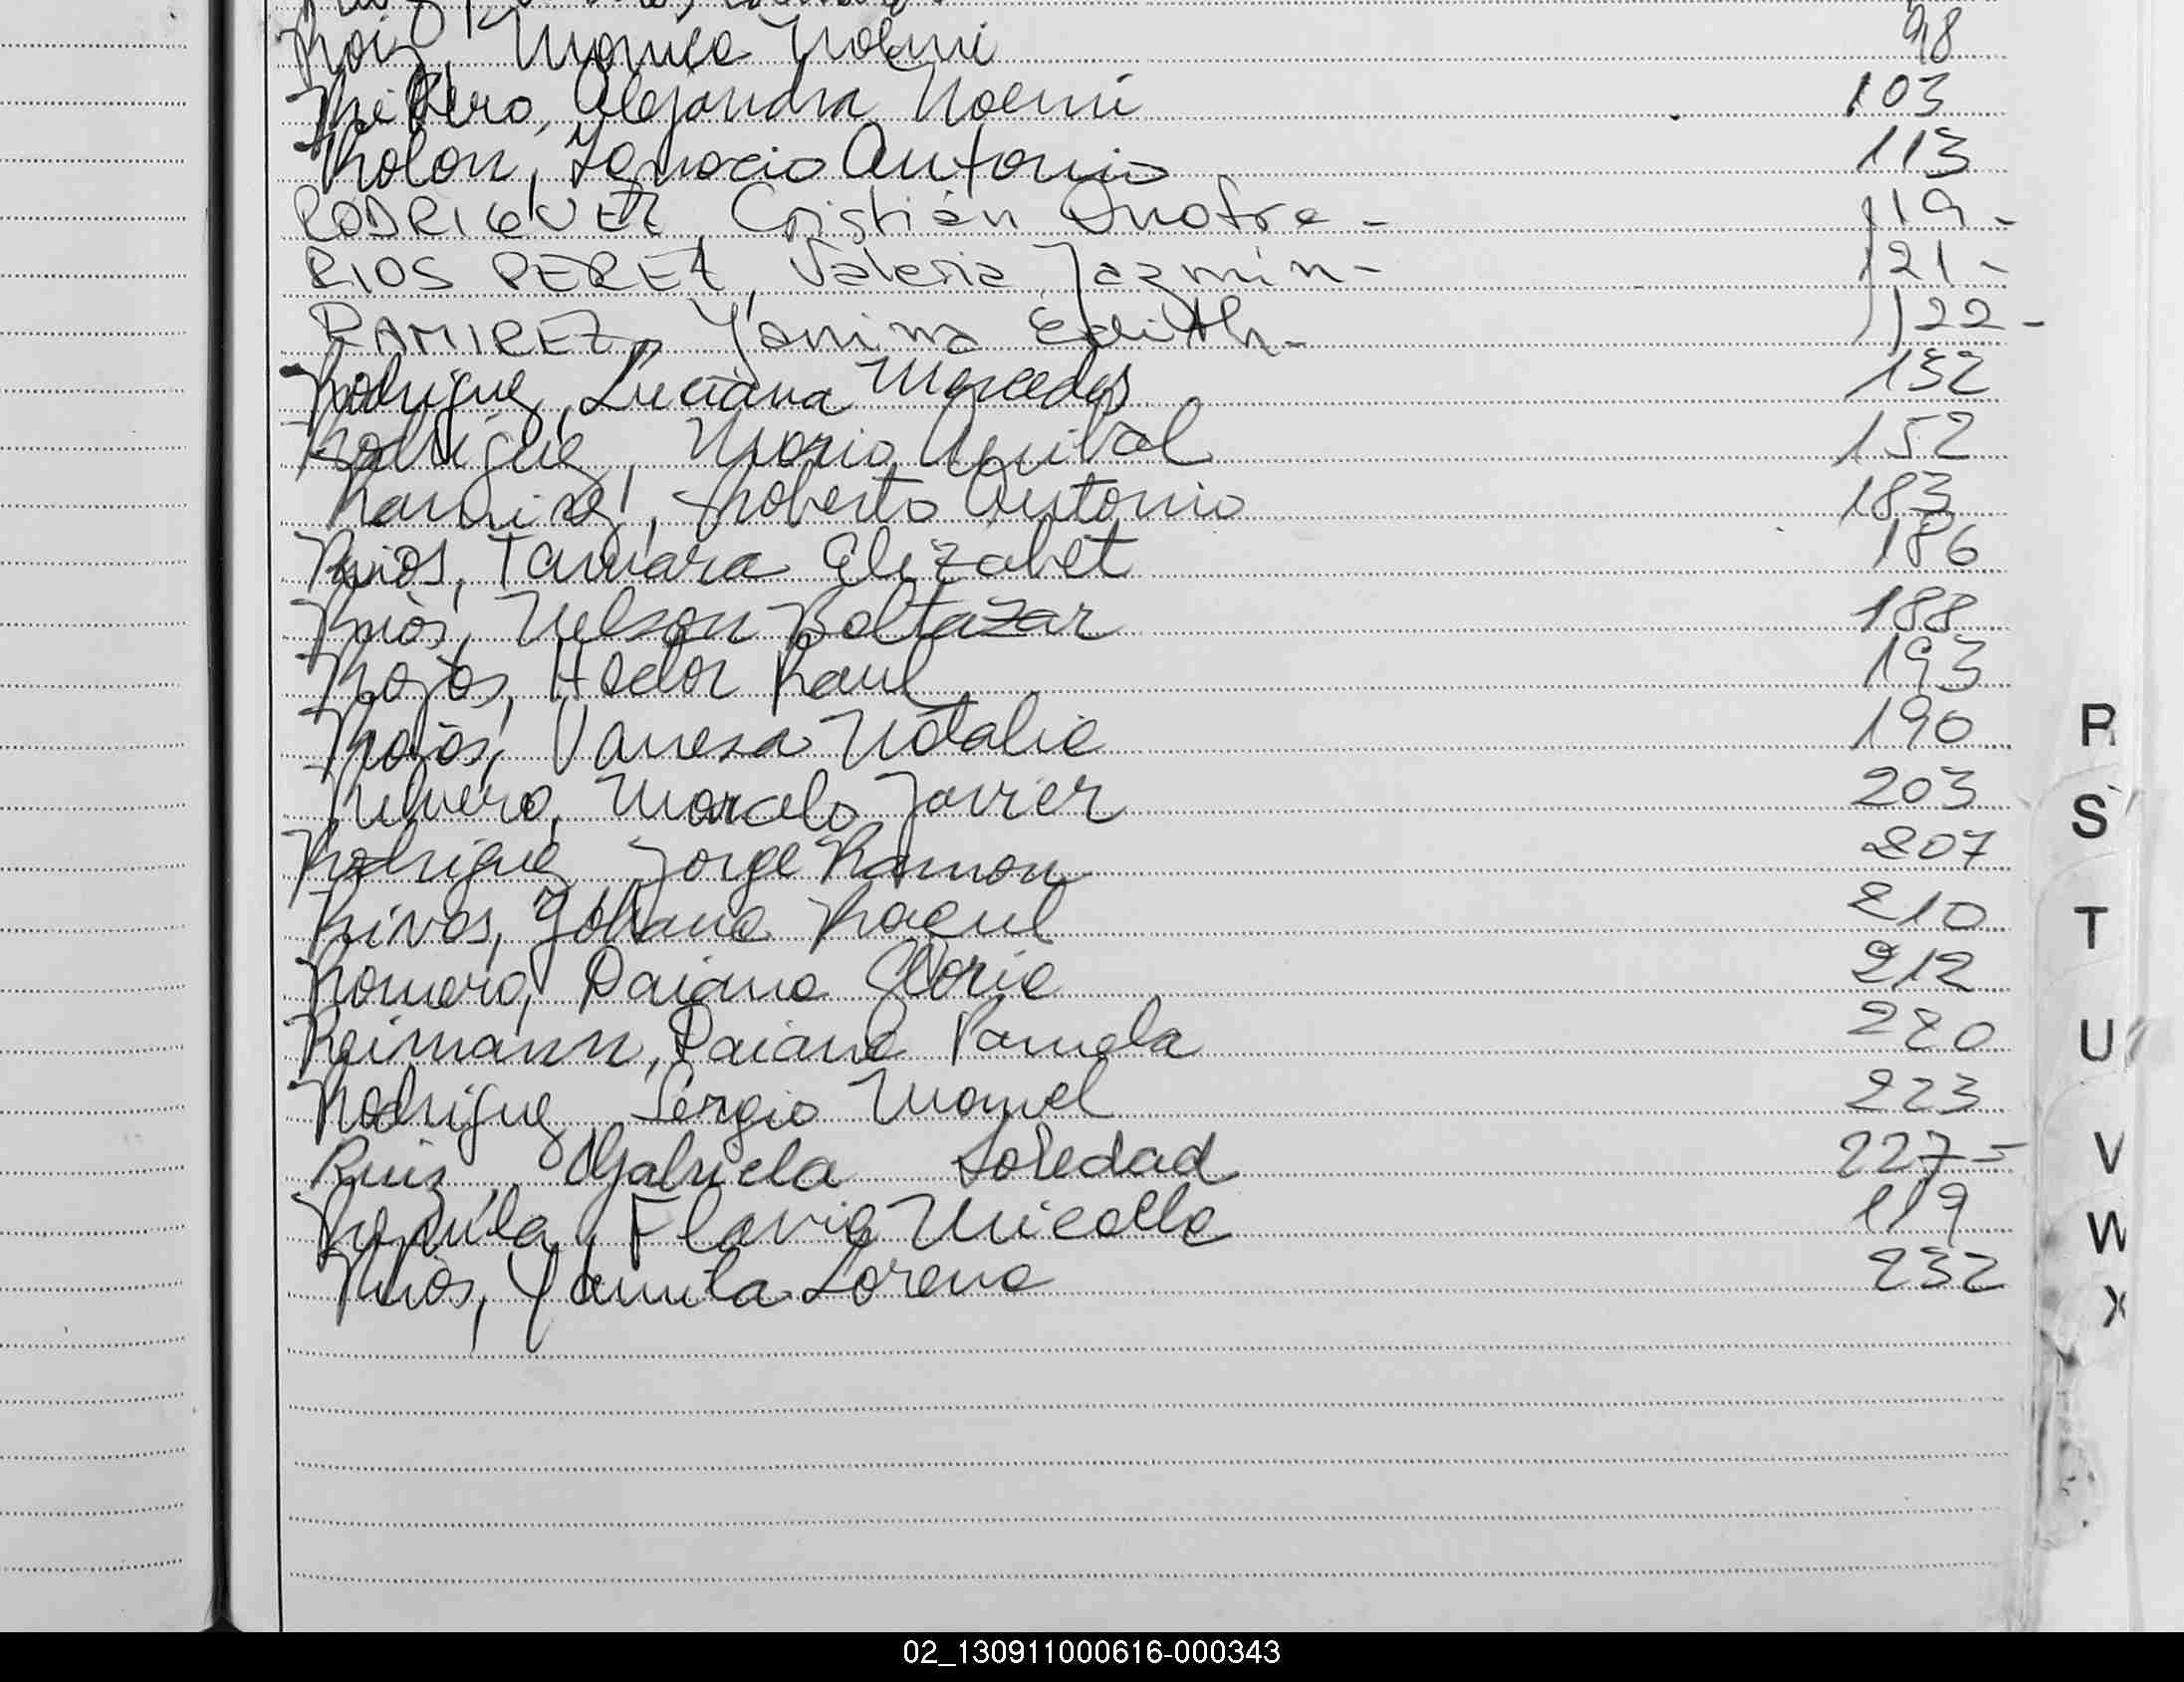 Roiz, Monica Noemi 98
Ribero, Alejandra Noemi 103
Rolon, Ignacio Antonio 113
RODRIGUEZ, Cristián Onofre - 119 -
RIOS PEREZ, Valeria Jazmín - 121 -
RAMIREZ, Yanina Edith - 122 -
Rodriguez, Luciana Mercedes 132
Rodriguez, Mario Anibal 152
Ramirez, Roberto Antonio 183
Rios, Tamara Elizabet 186
Rios, Nelson Baltazar 188
Rojas, Hector Raul 193
Rojas, Vanesa Natalia 190
Marcelo Javier 203
Rodriguez Jorge Ramon 207
Rivas, Johana Raquel 210
Romero, Daiana Gloria 212
Reimann, Daiana Pamela 220
Rodriguez Sergio Manuel 223
Ruiz, Gabriela Soledad 227 -
Flavia Micaela 119
Rios, Yamila Lorena 232
R
S
T
U
V
W
X
02_130911000616-000343